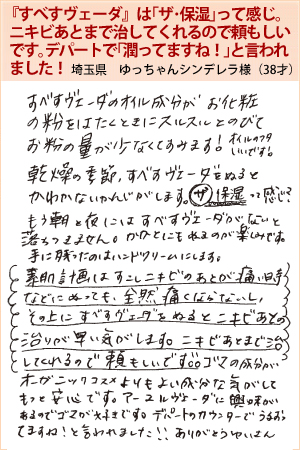 『すべすヴェーダ』は「ザ・保湿」って感じ。
ニキビあとまで治してくれるので頼もしい
です。デパートで「潤ってますね!」と言われ
ました! 埼玉県 ゆっちゃんシンデレラ様(38才)
すべすヴェーダのオイル成分が お化粧
の粉をはたくときにスルスルとのびて
お粉の量が少なくてすみます! オイルのツヤ
いいです。
乾燥の季節、すべすヴェーダをぬると
かわかないかんじがします。ザ 保湿 って感じで
もう朝と夜には すべすヴェーダがないと
落ちつきません。かかとにもぬるのが楽しみです。
手に残ったのはハンドクリームにします。
素肌計画はすこしニキビのあとが痛い時
などにぬっても、全然 痛くならないし、
その上にすべすヴェーダをぬると ニキビあとの
治りが早い気がします。ニキビあとまで治
してくれるので 頼もしいです。ゴマの成分が
オーガニックコスメよりもよい成分な気がして
もっと安心です。アーユルヴェーダに興味が
あるのでゴマが大好きです。デパートのカウンターで うるおっ
てますね!と言われました!! ありがとうございます